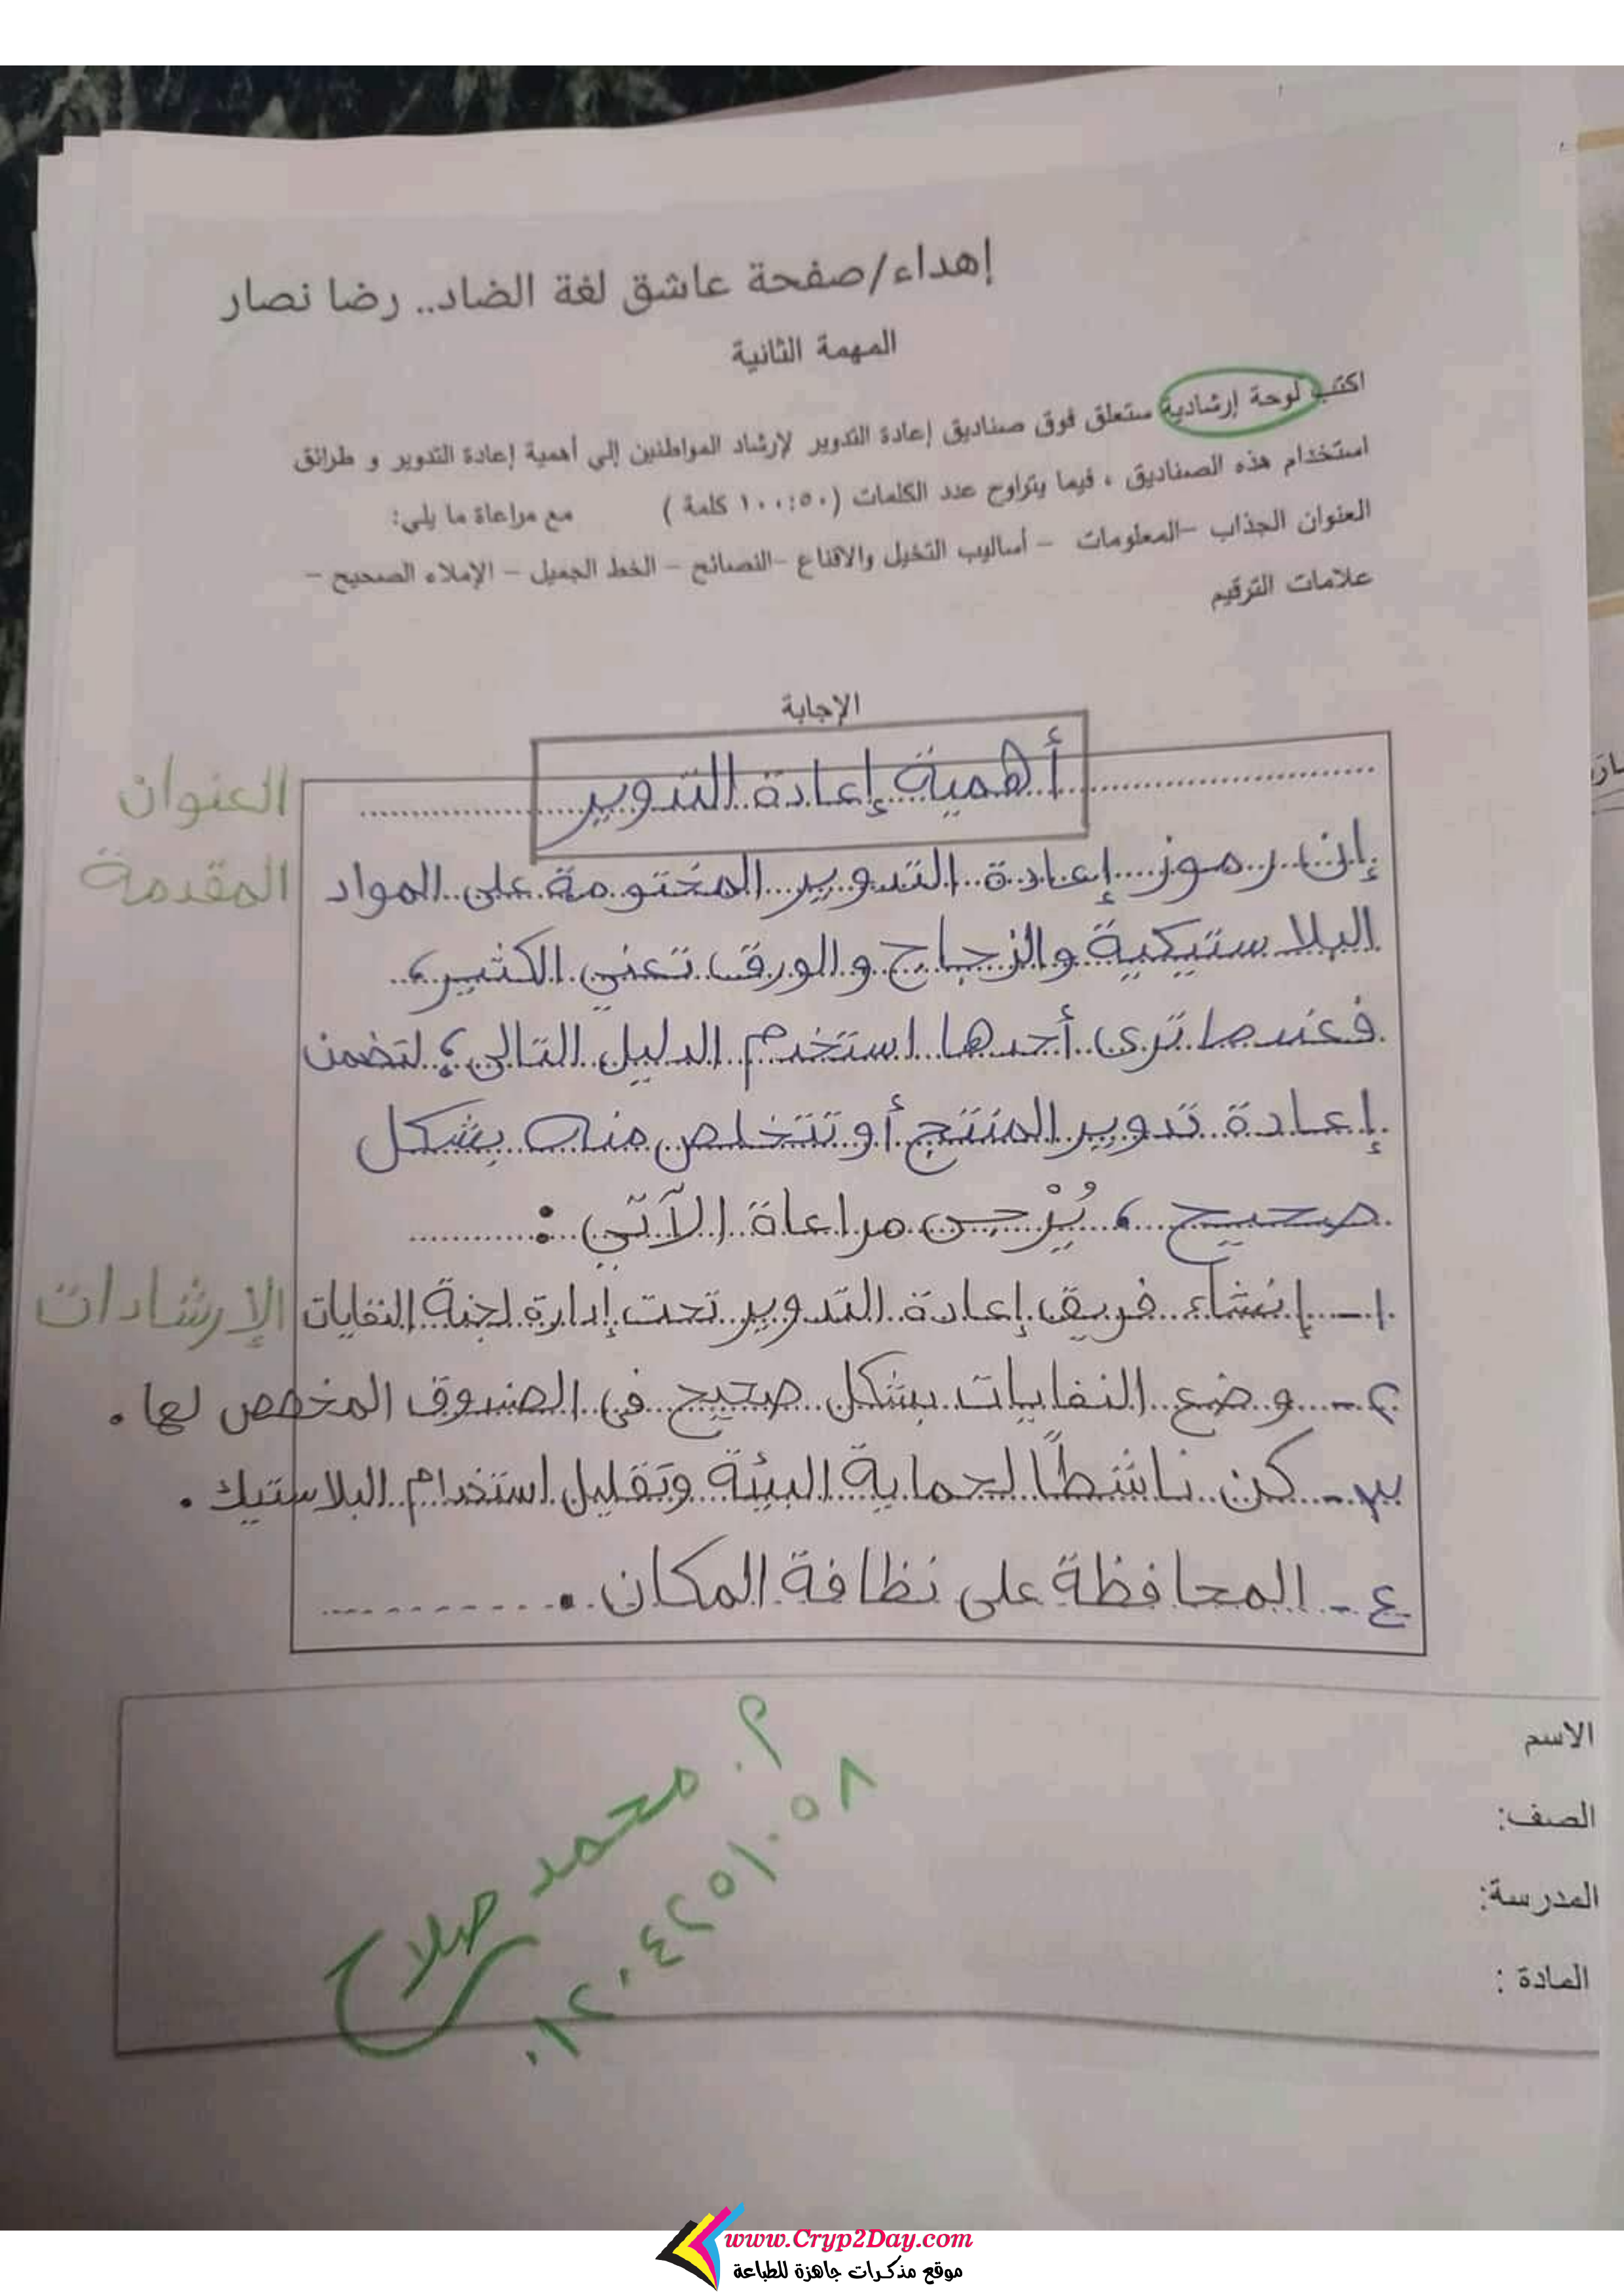 إهداء/صفحة عاشق لغة الضاد.. رضا نصار
المهمة الثانية
اكتب لوحة إرشادية ستعلق فوق صناديق إعادة التدوير لإرشاد المواطنين إلي أهمية إعادة التدوير و طرائق
استخدام هذه الصناديق ، فيما يتراوح عدد الكلمات (١٠٠:٥٠ كلمة ) مع مراعاة ما يلي:
العنوان الجذاب –المعلومات – أساليب التخيل والاقناع –النصائح – الخط الجميل – الإملاء الصحيح –
علامات الترقيم
الإجابة
العنوان
أهمية إعادة التدوير
المقدمة
إن رموز إعادة التدوير المختومة على المواد
البلاستيكية والزجاج والورق تعني الكثير،
فعندما ترى أحدها استخدم الدليل التالي؛ لتضمن
إعادة تدوير المنتج أو تتخلص منه بشكل
صحيح ، يُرْجى مراعاة الآتي :
الإرشادات
١- إنشاء فريق إعادة التدوير تحت إدارة لجنة النفايات
٢- وضع النفايات بشكل صحيح في الصندوق المخصص لها .
٣- كن ناشطًا لحماية البيئة وتقليل استخدام البلاستيك .
٤- المحافظة على نظافة المكان .
الاسم
الصف:
المدرسة:
المادة :
م. محمد صلاح
٠١٢٠٤٢٥١٠٥٨
www.Cryp2Day.com
موقع مذكرات جاهزة للطباعة